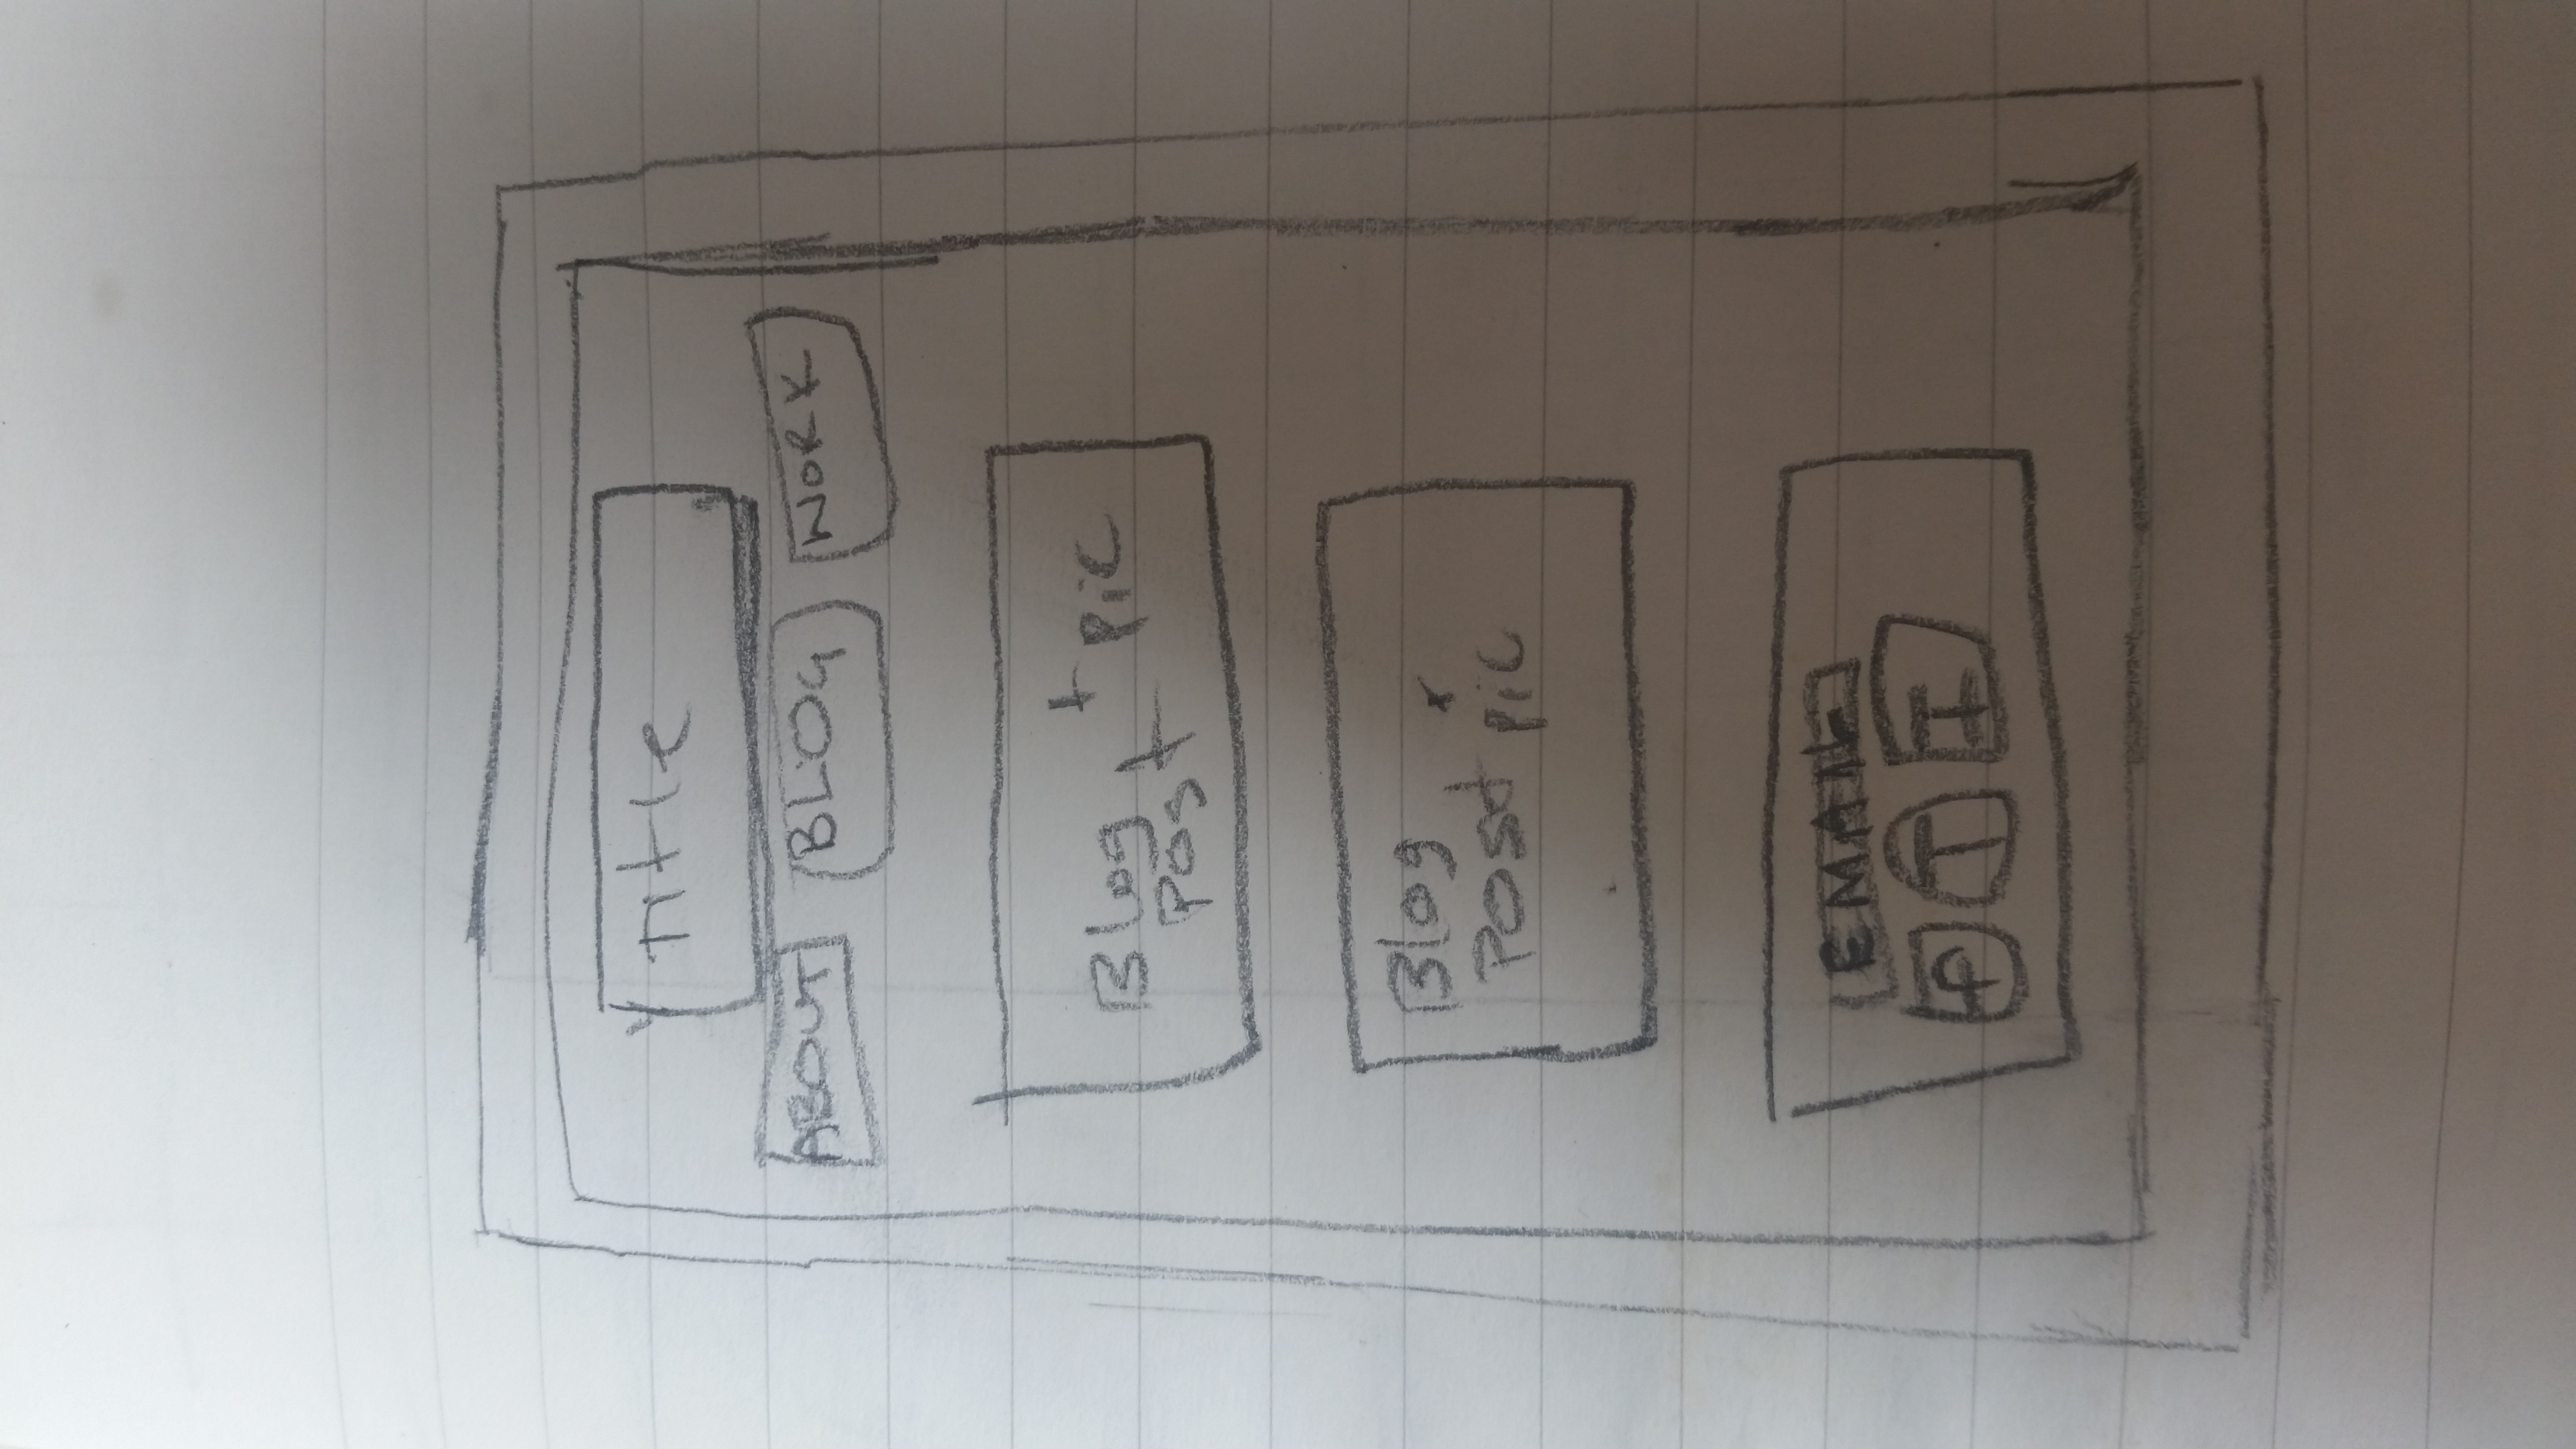 Title
ABOUT BLOG WORK
Blog + pic
Post
Blog
Post pic
EMAIL
F T I